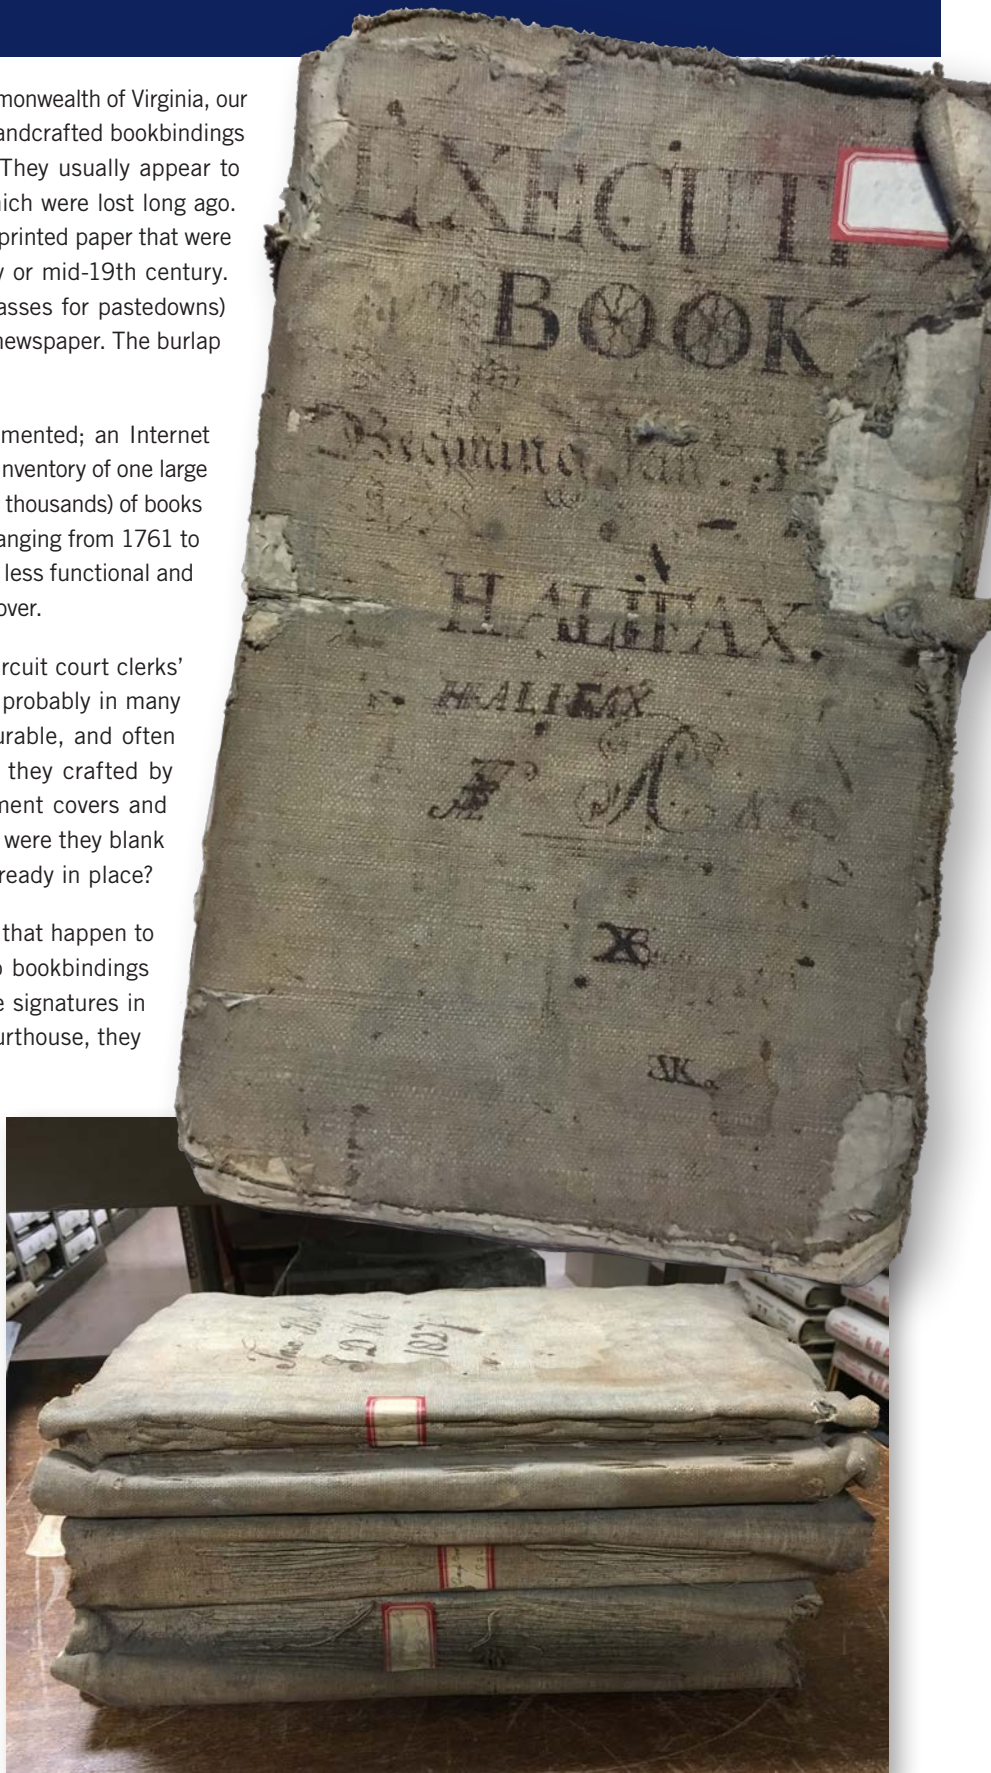 monwealth of Virginia, our
andcrafted bookbindings
They usually appear to
ich were lost long ago.
printed paper that were
y or mid-19th century.
asses for pastedowns)
newspaper. The burlap
mented; an Internet
inventory of one large
thousands) of books
anging from 1761 to
less functional and
over.
rcuit court clerks’
probably in many
urable, and often
they crafted by
ment covers and
were they blank
ready in place?
that happen to
bookbindings
e signatures in
urthouse, they
EXECUTI
BOOK
Begining Jan
HALIFAX.
HALIFAX
1827